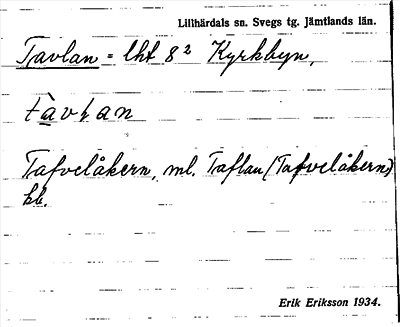 Lillhärdals sn. Svegs tg. Jämtlands län.
Tavlan = lht 8² Kyrkbyn,
tàvḷan
Tafvelåkern, ml. Taflan (Tafvelåkern)
kb.
Erik Eriksson 1934.